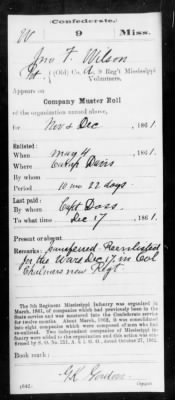 (Confederate.)
W 9 Miss.
Jno. F. Wilson
Pvt, (Old) Co. A, 9 Reg't Mississippi
Volunteers.
Appears on
Company Muster Roll
of the organization named above,
for Nov & Dec, 1861.
Enlisted:
When May 4, 1861.
Where Camp Davis
By whom
Period 10 mo 22 days.
Last paid:
By whom Capt Doss.
To what time Dec 17, 1861.
Present or absent
Remarks: Reenlisted
for the War Dec 17 in Col
Chalmers new Regt
The 9th Regiment Mississippi Infantry was organized in
March, 1861, of companies which had previously been in the
State service and was mustered into the Confederate service
for twelve months. About March, 1862, it was consolidated
into eight companies which were composed of men who had
re-enlisted. Two independent companies of Mississippi In-
fantry were added to the organization and this action was con-
firmed by S. O. No. 251, A. & I. G. O., dated October 27, 1862.
Book mark:
(642)
Copyist.